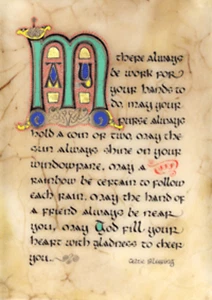 MAY there always
be work for
your hands to
do. may your
purse always
hold a coin or two. may the
sun always shine on your
windowpane, may a
rainbow be certain to follow
each rain. may the hand of
a friend always be near
you, may God fill your
heart with gladness to cheer
you..
Celtic Blessing